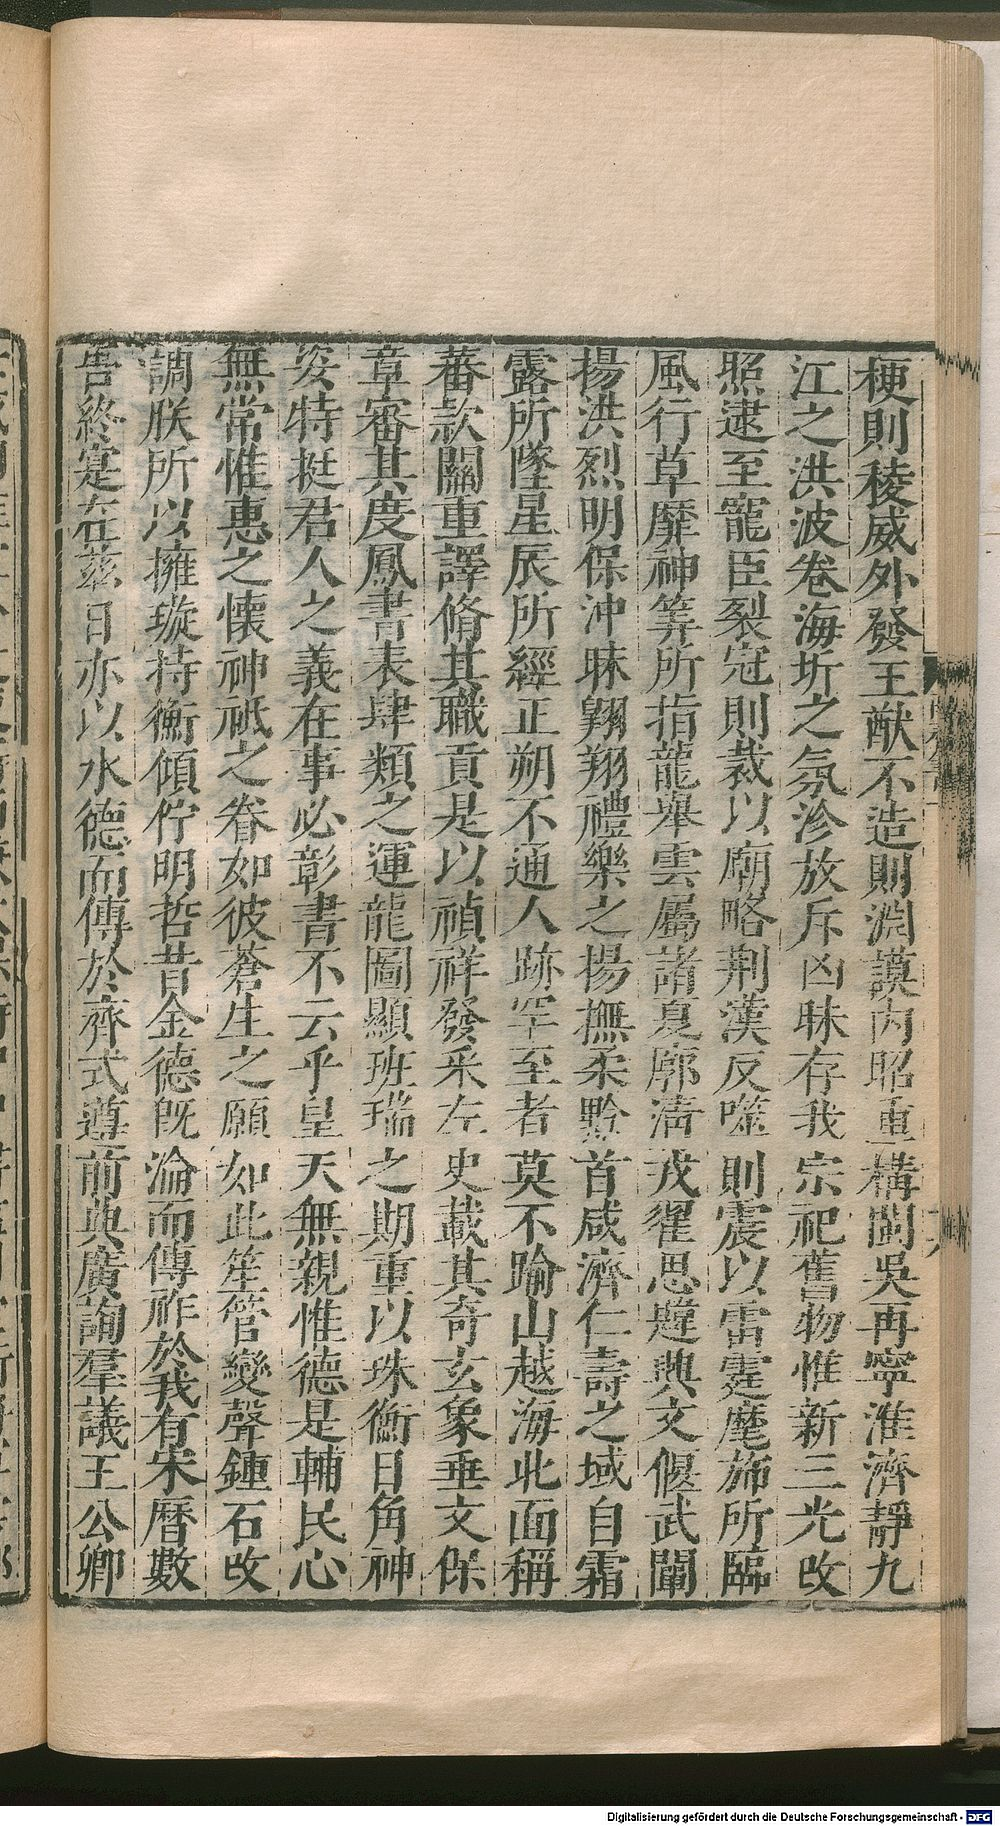 梗則稜威外發王猷不造則淵謨内昭重構閩吳再寧淮濟靜九
江之洪波卷海圻之氛沴放斥凶昧存我宗祀舊物惟新三光改
照逮至寵臣裂冠則裁以廟略荆漢反噬則震以雷霆麾斾所臨
風行草靡神筭所指龍舉雲屬諸夏廓清戎翟思韙興文偃武闡
揚洪烈明保沖昧翱翔禮樂之揚撫柔黔首咸濟仁壽之域自霜
露所墜星辰所經正朔不通人跡罕至者莫不踰山越海北面稱
蕃款關重譯脩其職貢是以禎祥發采左史載其奇玄象垂文保
章審其度鳳書表肆類之運龍圖顯班瑞之期重以珠衡日角神
姿特挺君人之義在事必彰書不云乎皇天無親惟德是輔民心
無常惟惠之懷神祇之眷如彼蒼生之願如此笙管變聲鍾石改
調朕所以擁璇持衡傾佇明哲昔金德既淪而傳祚於我有宋曆數
告終寔在兹日亦以水德而傳於齊式遵前典廣詢羣議王公卿
Digitalisierung gefördert durch die Deutsche Forschungsgemeinschaft - DFG